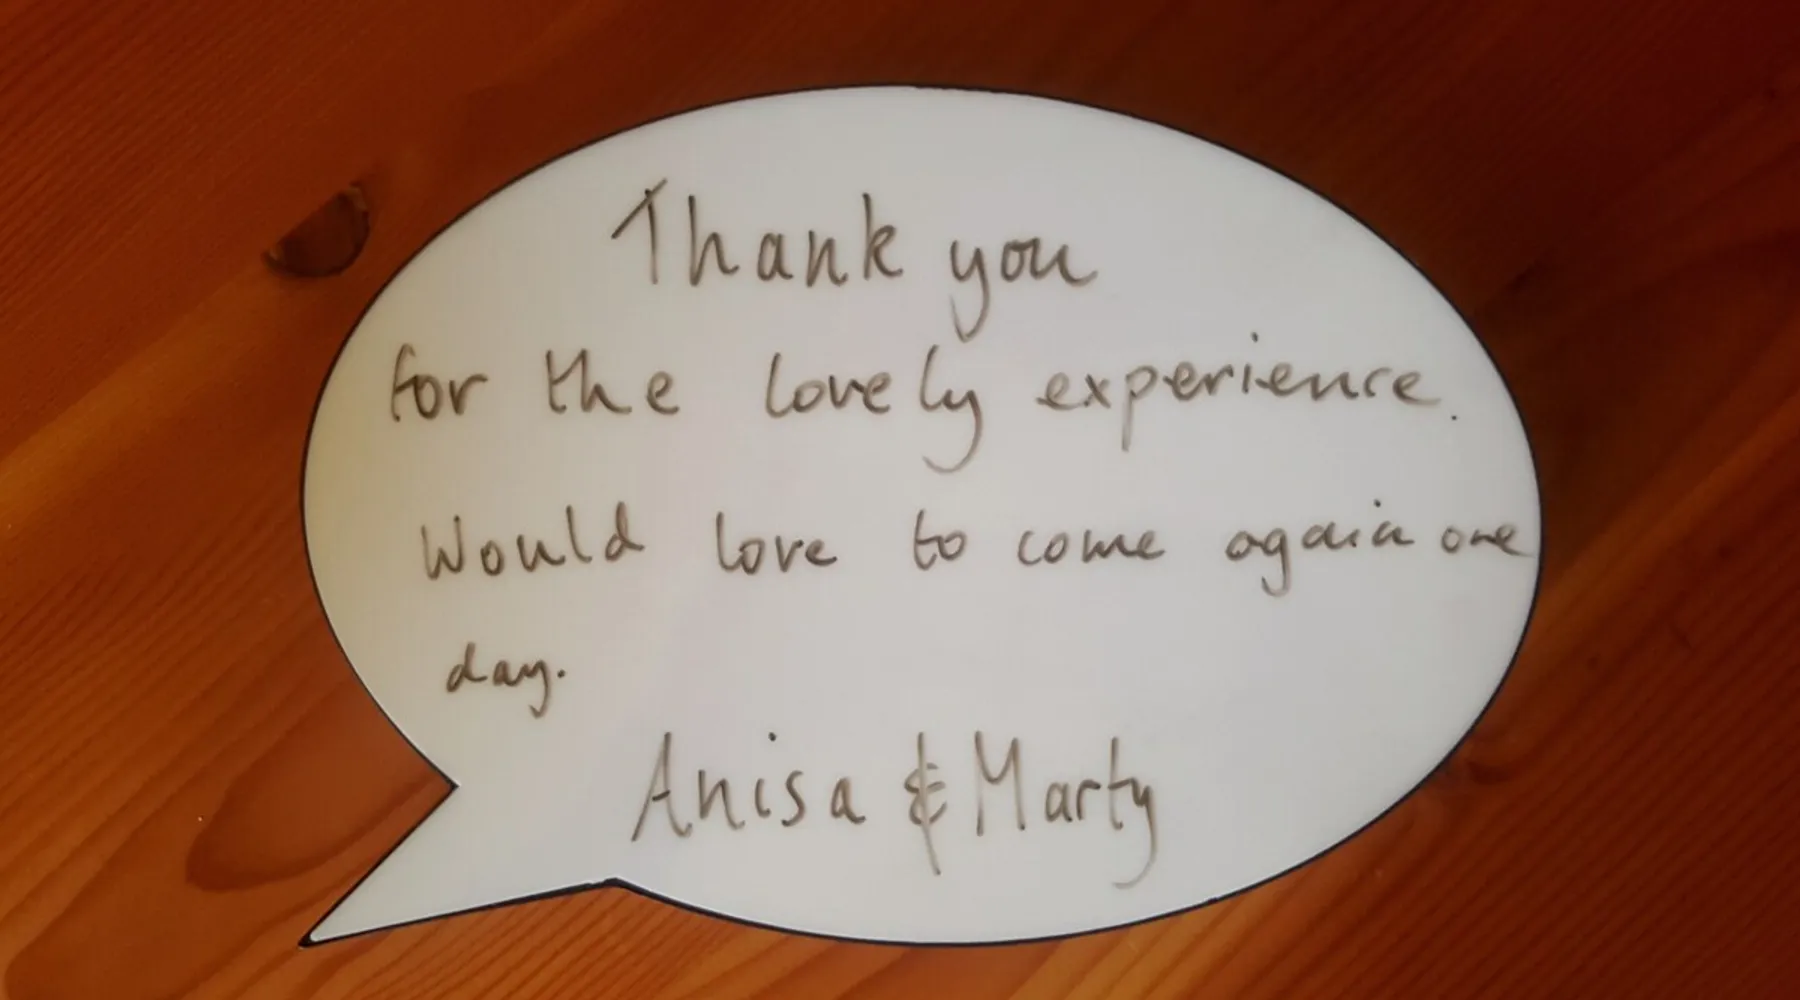 Thank you
for the lovely experience.
Would love to come again one
day.
Anisa & Marty